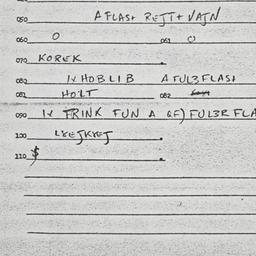 050 A FLASH REJT + VAJN
060 O 061 O
070 KOREK
080 1x HOBLIB A FUL3FLASH
081 HOLT 082
090 1x TRINK FUN A QF) FUL3R FLA
100
110 $